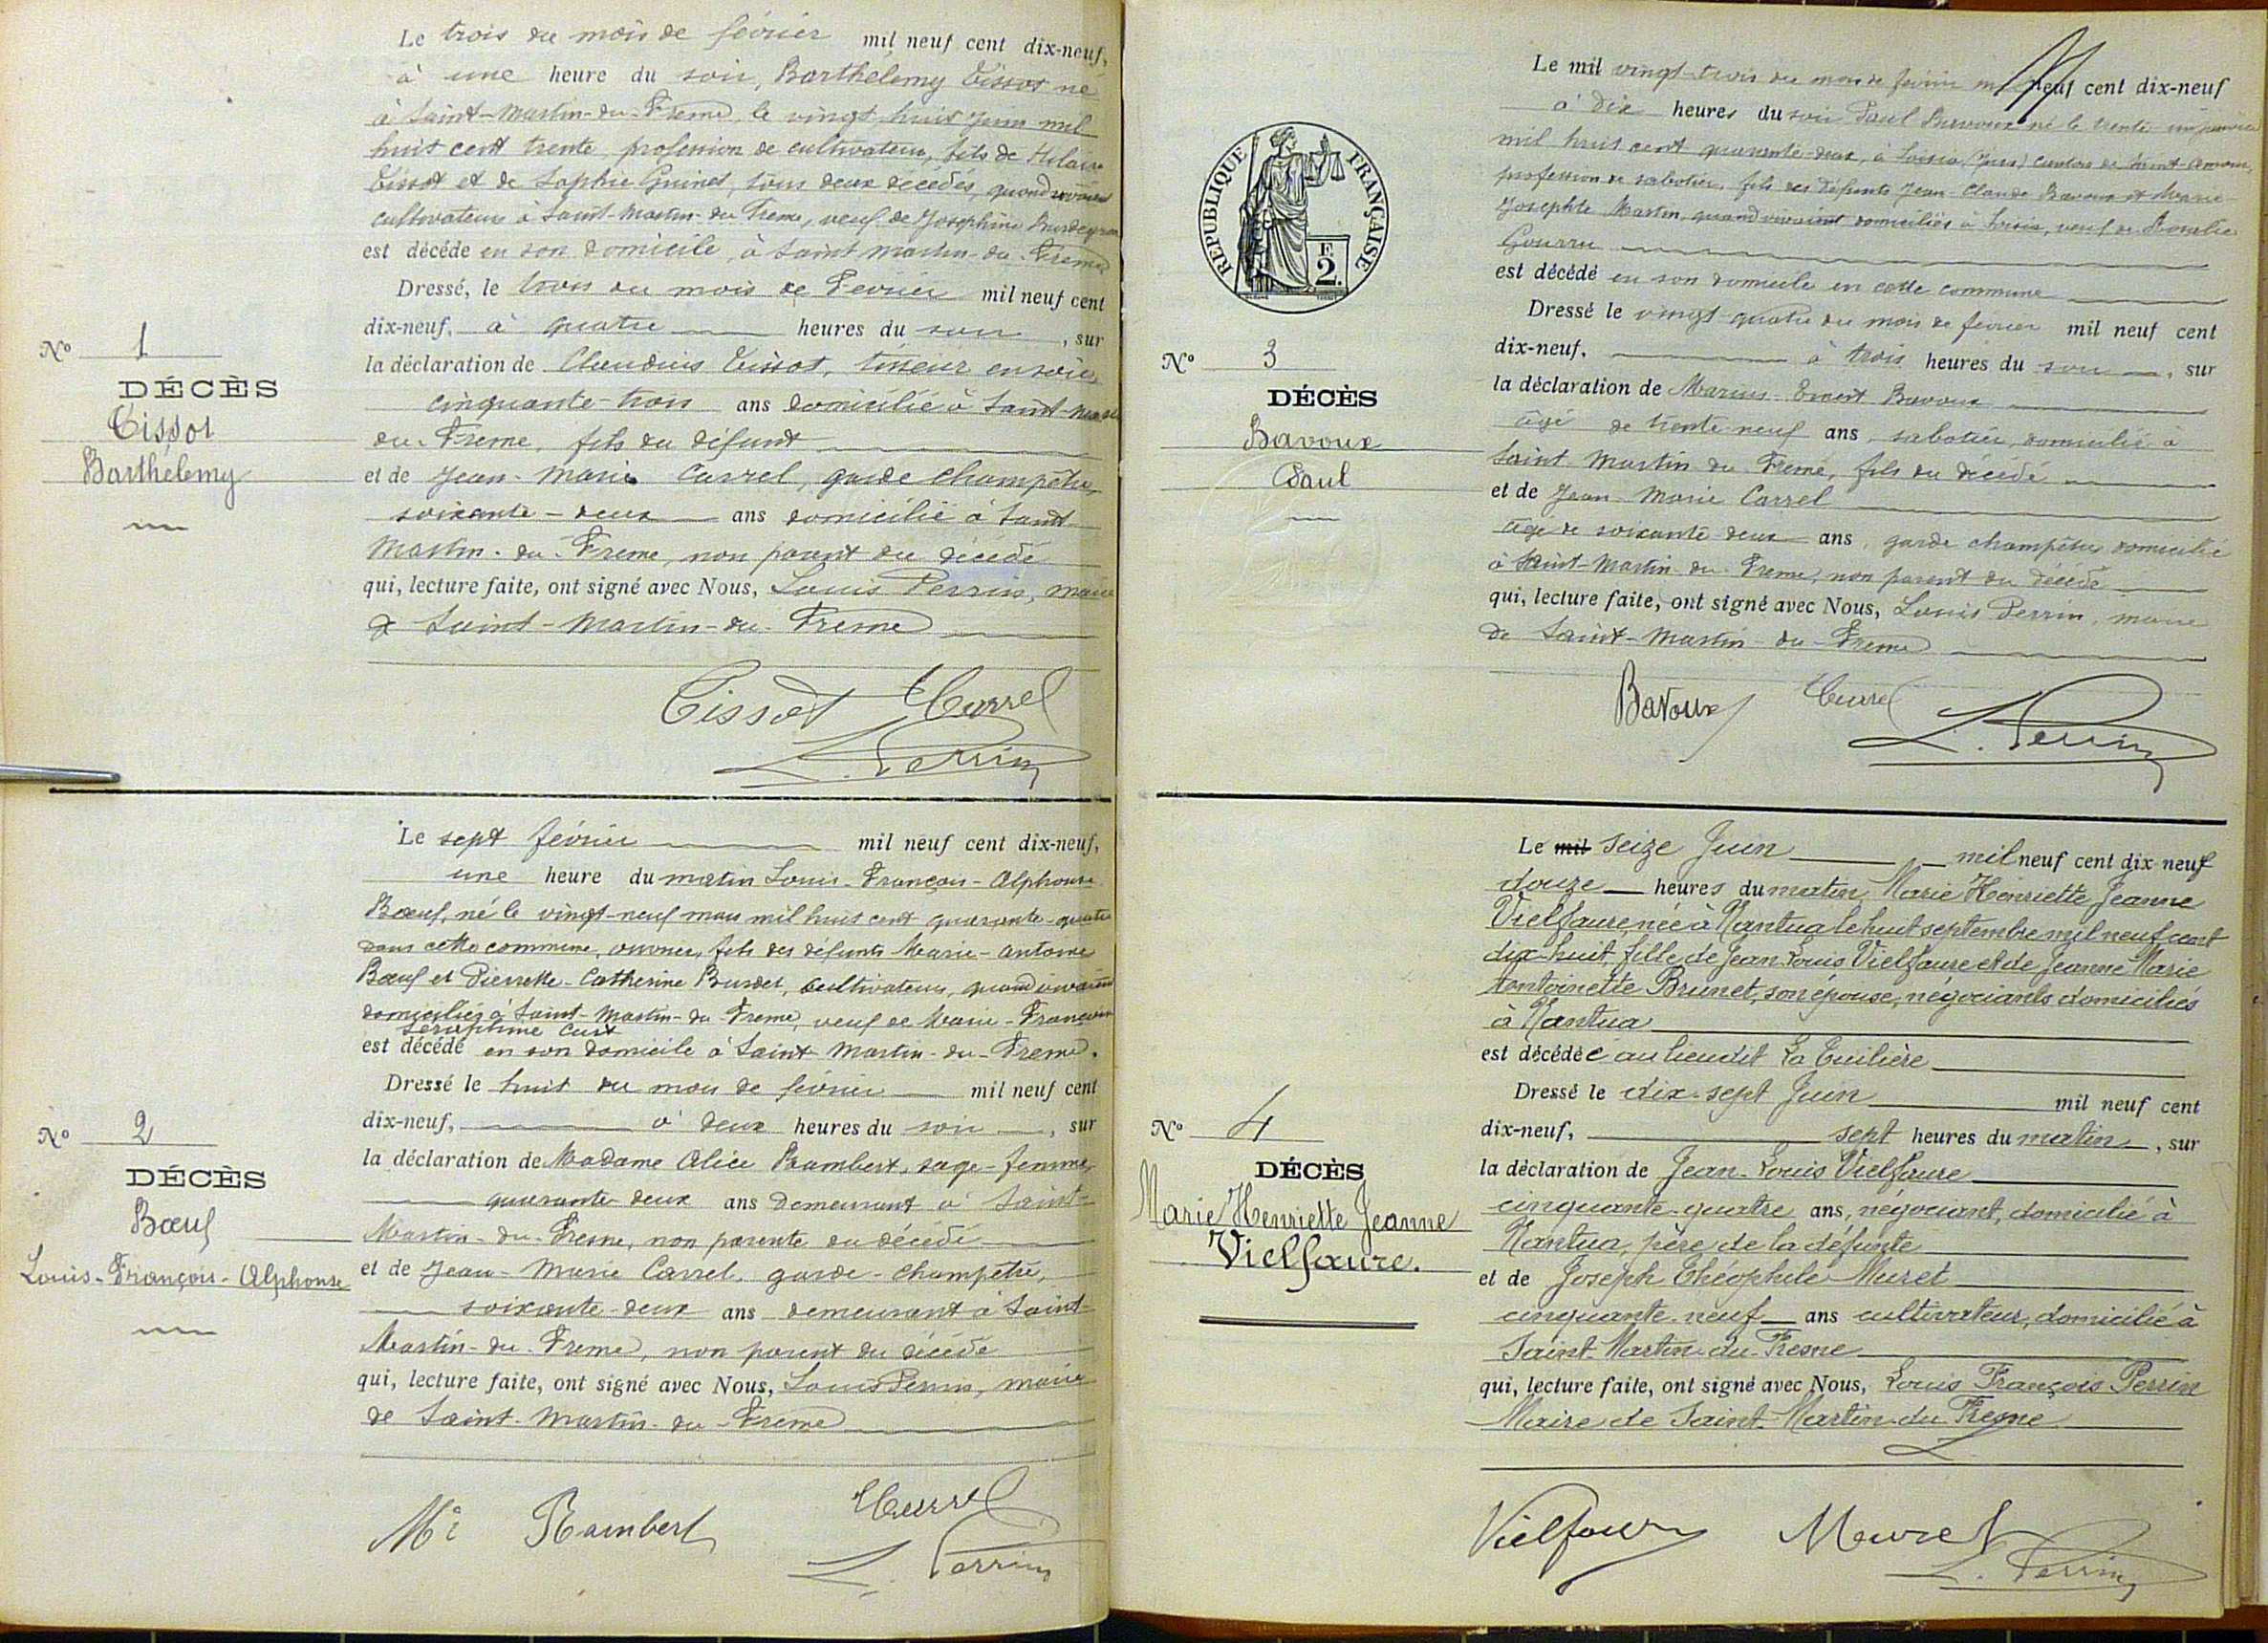 Le trois du mois de février mil neuf cent dix-neuf,
à une heure du soir, Barthélemy Tissot né
à Saint-Martin-du-Fresne, le vingt huit Juin mil
huit cent trente profession de cultivateur, fils de Hilaire
Tissot et de Sophie Guinet, tous deux décédés, quand vivaient
cultivateurs à Saint-Martin-du Fresne, veuf de Joséphine
est décédé en son domicile, à Saint Martin-du-Fresne
Dressé, le trois du mois de Février mil neuf cent
dix-neuf, à quatre heures du soir, sur
la déclaration de Claudius Tissot, tisseur en soie
cinquante-trois ans domicilié à Saint-Martin
du-Fresne, fils du défunt
et de Jean-Marie Carrel, garde champêtre,
soixante-deux ans domicilié à Saint
Martin-du-Fresne, non parent du décédé
qui, lecture faite, ont signé avec Nous, Louis Perrin, maire
de Saint-Martin-du-Fresne
Nº 1
DÉCÈS
Tissot
Barthélemy
Tissot Carrel
L. Perrin
Le sept février mil neuf cent dix-neuf,
une heure du matin Louis-François-Alphonse
Bœuf, né le vingt-neuf mars mil huit cent quarante-quatre
dans cette commune, fils des défunts Marie-Antoine
Bœuf et Pierrette-Catherine Burdet, cultivateurs, quand vivaient
domiciliés à Saint-Martin-du Fresne, veuf de Marie-Françoise
Séraphine Cuit
est décédé en son domicile à Saint Martin-du-Fresne.
Dressé le huit du mois de février mil neuf cent
dix-neuf, à deux heures du soir, sur
la déclaration de Madame Alice Rambert, sage-femme,
quarante-deux ans demeurant à Saint-
Martin-du-Fresne, non parente du décédé
et de Jean-Marie Carrel, garde-champêtre,
soixante-deux ans demeurant à Saint-
Martin-du-Fresne, non parent du décédé
qui, lecture faite, ont signé avec Nous, Louis Perrin, maire
de Saint-Martin-du-Fresne
Nº 2
DÉCÈS
Bœuf
Louis-François-Alphonse
Rambert
Carrel
L. Perrin
RÉPUBLIQUE FRANÇAISE
F
2.
Le mil vingt-trois du mois de février mil neuf cent dix-neuf
à dix heures du soir Paul Bavoux né le trente un janvier
mil huit cent quarante-deux, à Loisia (Jura) canton de Saint-Amour,
profession de sabotier, fils des défunts Jean-Claude Bavoux et Marie
Josephte Martin, quand vivaient domiciliés à Loisia, veuf de Rosalie
Gourru
est décédé en son domicile en cette commune
Dressé le vingt-quatre du mois de février mil neuf cent
dix-neuf, à trois heures du soir, sur
la déclaration de Marius-Ernest Bavoux
âgé de trente-neuf ans, sabotier, domicilié à
Saint-Martin du Fresne, fils du décédé
et de Jean-Marie Carrel
âgé de soixante-deux ans, garde champêtre domicilié
à Saint-Martin-du-Fresne, non parent du décédé
qui, lecture faite, ont signé avec Nous, Louis Perrin, maire
de Saint-Martin-du-Fresne
Nº 3
DÉCÈS
Bavoux
Paul
Bavoux Carrel
L. Perrin
Le mil Seize Juin mil neuf cent dix neuf
douze heures du matin, Marie Henriette Jeanne
Vielfaure née à Nantua le huit septembre mil neuf cent
dix-huit, fille de Jean Louis Vielfaure et de Jeanne Marie
Antoinette Brunet, son épouse, négociants domiciliés
à Nantua
est décédée au lieudit La Tuilière
Dressé le dix-sept Juin mil neuf cent
dix-neuf, sept heures du matin, sur
la déclaration de Jean-Louis Vielfaure
cinquante-quatre ans, négociant, domicilié à
Nantua, père de la défunte
et de Joseph Théophile Muret
cinquante-neuf ans cultivateur, domicilié à
Saint-Martin-du-Fresne
qui, lecture faite, ont signé avec Nous, Louis François Perrin
Maire de Saint-Martin-du Fresne
Nº 4
DÉCÈS
Marie Henriette Jeanne
Vielfaure.
Vielfaure Meuret
L. Perrin